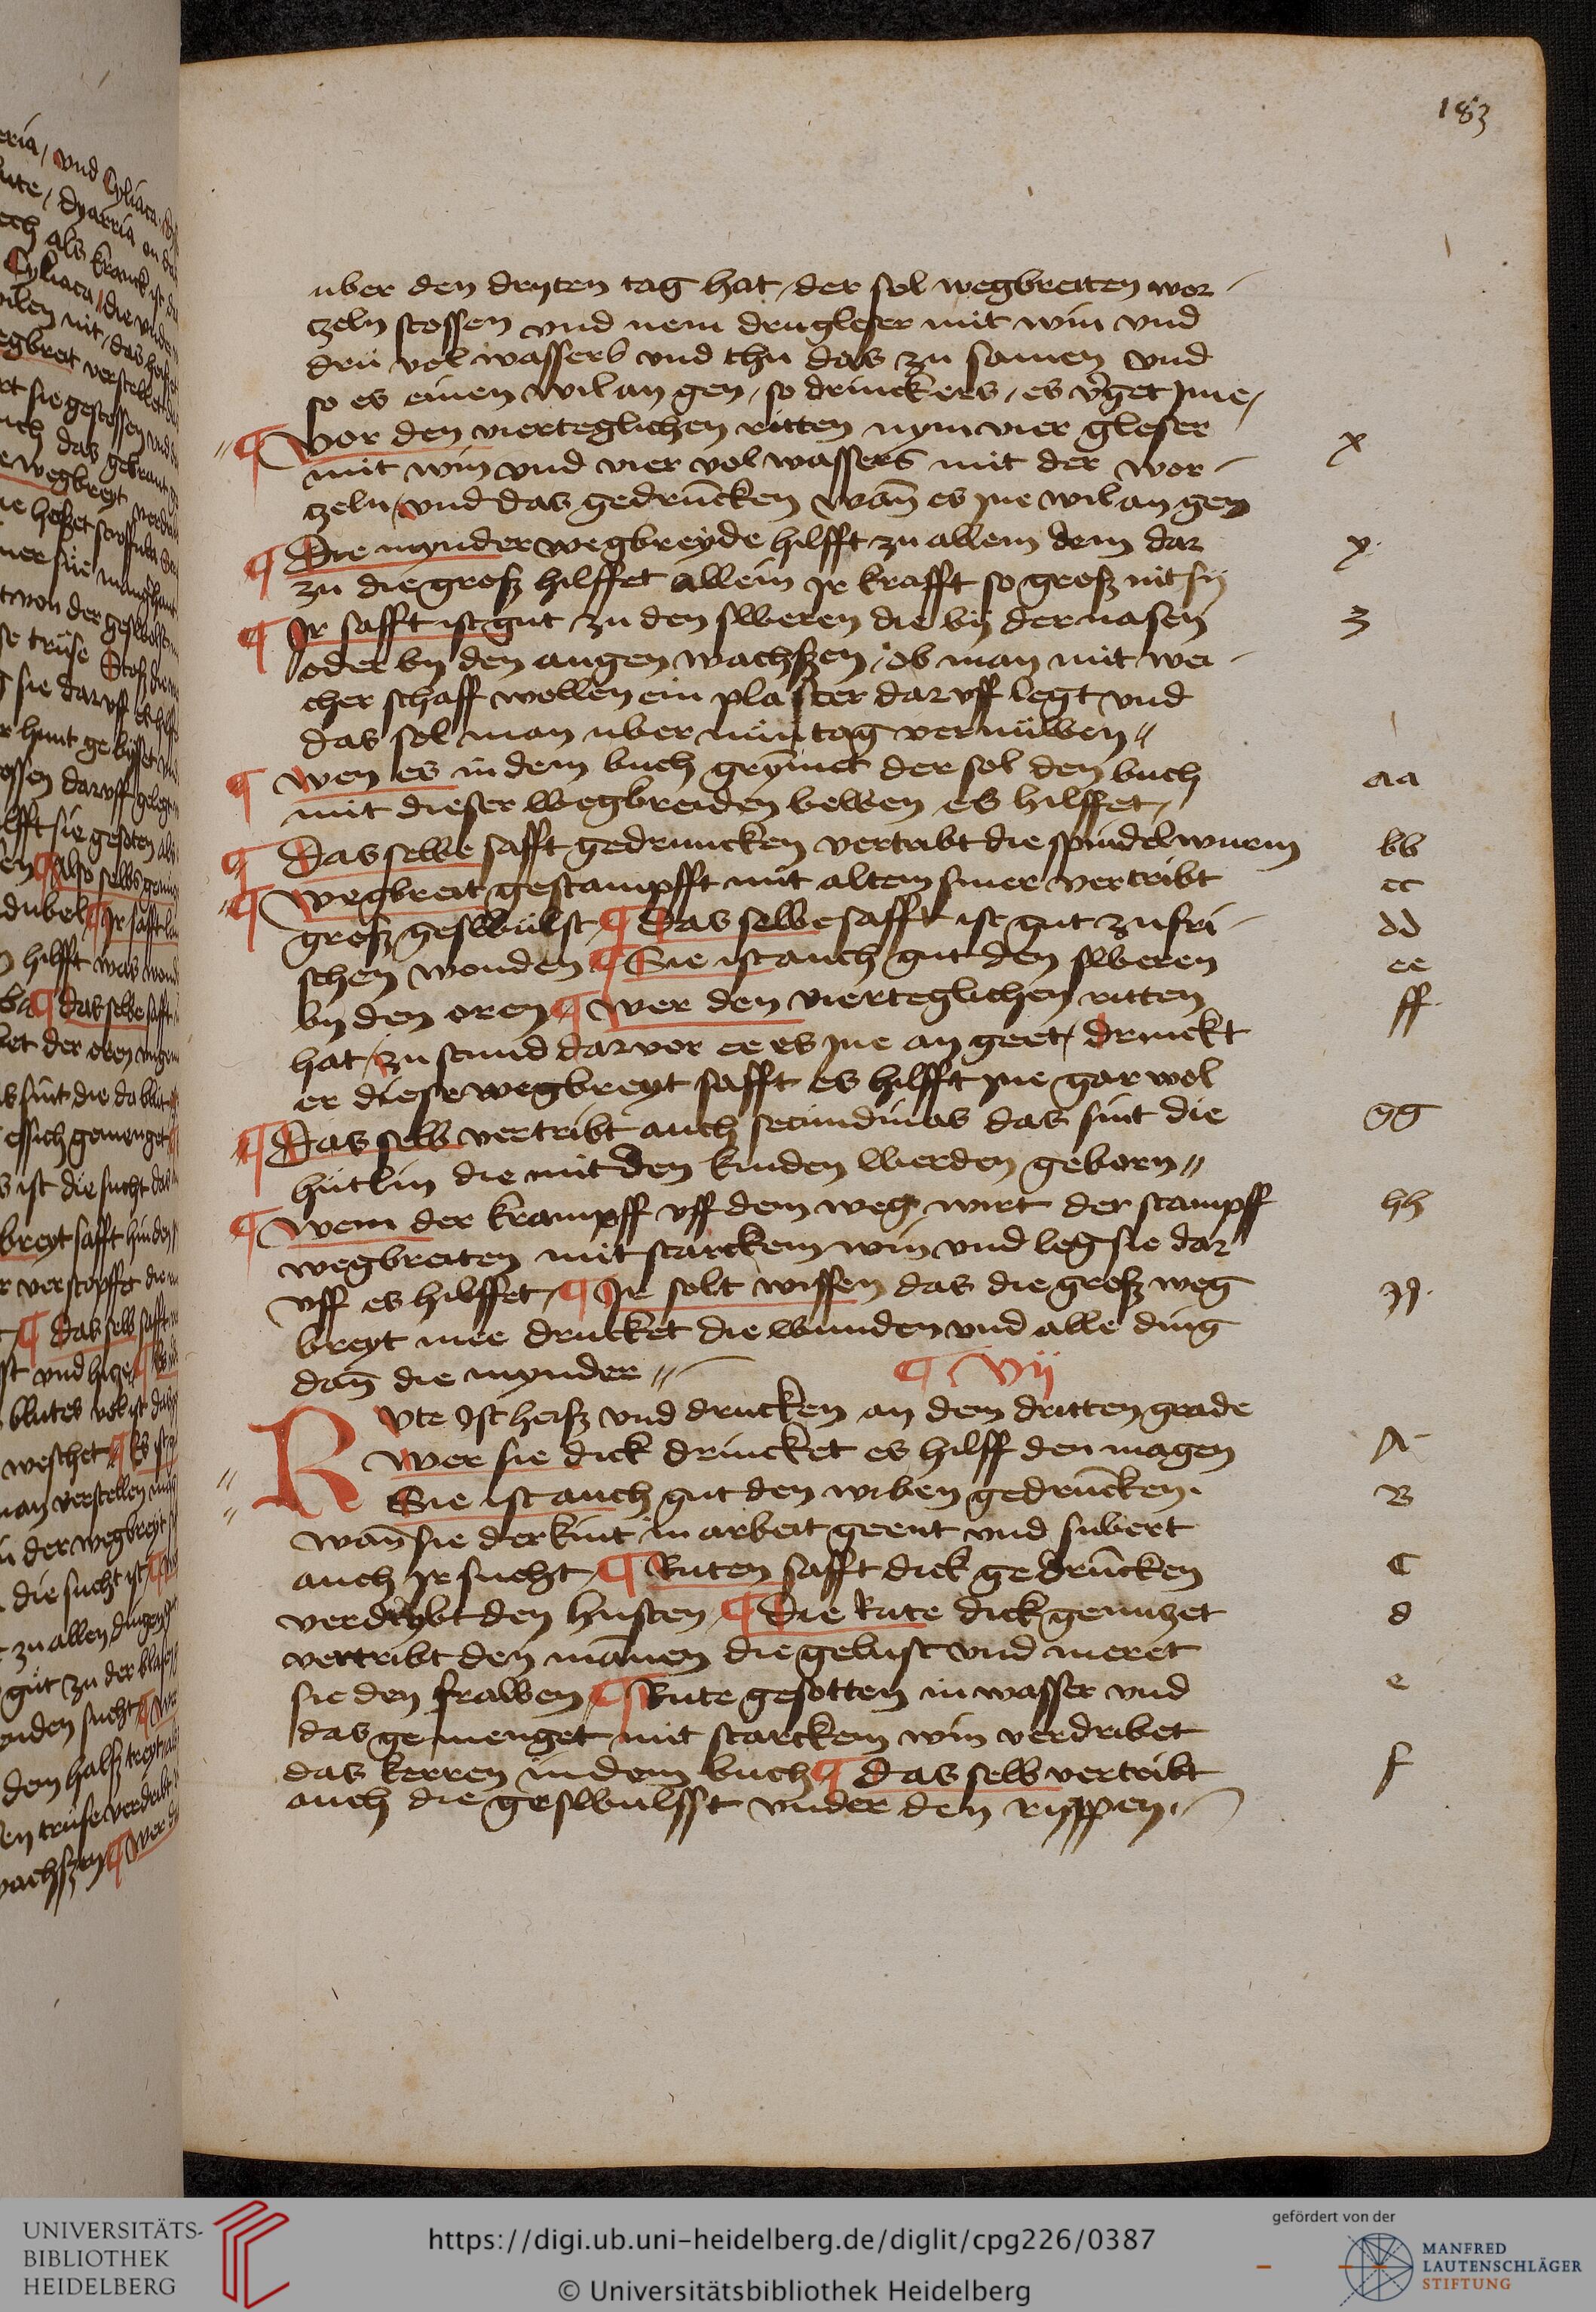 183
uber den dryten tag hat / der sol wegbreiten wor-
czeln stossen vnd nem dru gleser mit win vnd
dru vol wassers vnd thu das zu samen vnd
so es einen wil an gen / so drinck ers / es v'get jme /
¶ Vor den vierteglichen ritten nym vier gleser x
mit win vnd vier vol wassers mit der wor-
czeln / vnd das gedrūcken wan̄ es jne wil an gen
¶ Die mynder wegbreyde hilfft zu allem dem dar y.
zu die grosz hilffet allein jr krafft so grosz nit sy
¶ Ir safft ist gut zu den sweren die by der nasen z
oder by den augen wachszen / ob man mit wei-
cher schaff wollen ein plaster dar vff legt vnd
das sol man uber nün tag vernüwen //
¶ Wen es in dem buch grymet der sol den buch aa
mit dieser wegbreiden bewen es hilffet /
¶ Das selbe safft gedruncken vertribt die spindelwurm bb
¶ Wegbreit gestampfft mit altem smer vertribt cc
grosz geswulst / ¶ Das selbe safft ist gut zu fri- dd
schen wonden ¶ Sie ist auch gut den sweren ee
by den oren ¶ Wer den vierteglichen ritten ff.
hat / zu stund dar vor ee es jne an geet / drinckt
er diese wegbreyt safft es hilfft jne gar wol
¶ Das selb vertribt auch secundinas das sint die gg
hutlin die mit den kinden werden geborn //
¶ Wem der krampff vff dem weg wirt der stampff hh
wegbreiten mit starckem win vnd leg sie dar
vff es hilffet / ¶ Ir solt wissen das die grosz weg jj.
breyt mee drucket die wunden vnd alle ding
dan̄ die mynder // ¶ Vij
RVte Ist heisz vnd drucken an dem dritten grade
Wer sie dick drincket es hilff den magen A
Sie ist auch gut den wiben gedrūcken. B
wan̄ sie der kint in arbeit geent vnd subert
auch jr sucht / ¶ Ruten safft dick gedrūcken C
verdrybt den husten / ¶ Die Rute dick genuczet d
vertribt den mānen die gelust vnd meret
sie den frawen / ¶ Rute gesotten in wasser vnd e
das gemenget mit starckem win verdribet
das kerren in dem buch ¶ das selb vertribt f
auch die geswulsst vnder den ryppen.
UNIVERSITÄTS-
BIBLIOTHEK
HEIDELBERG
https://digi.ub.uni-heidelberg.de/diglit/cpg226/0387
© Universitätsbibliothek Heidelberg
gefördert von der
MANFRED
LAUTENSCHLÄGER
STIFTUNG